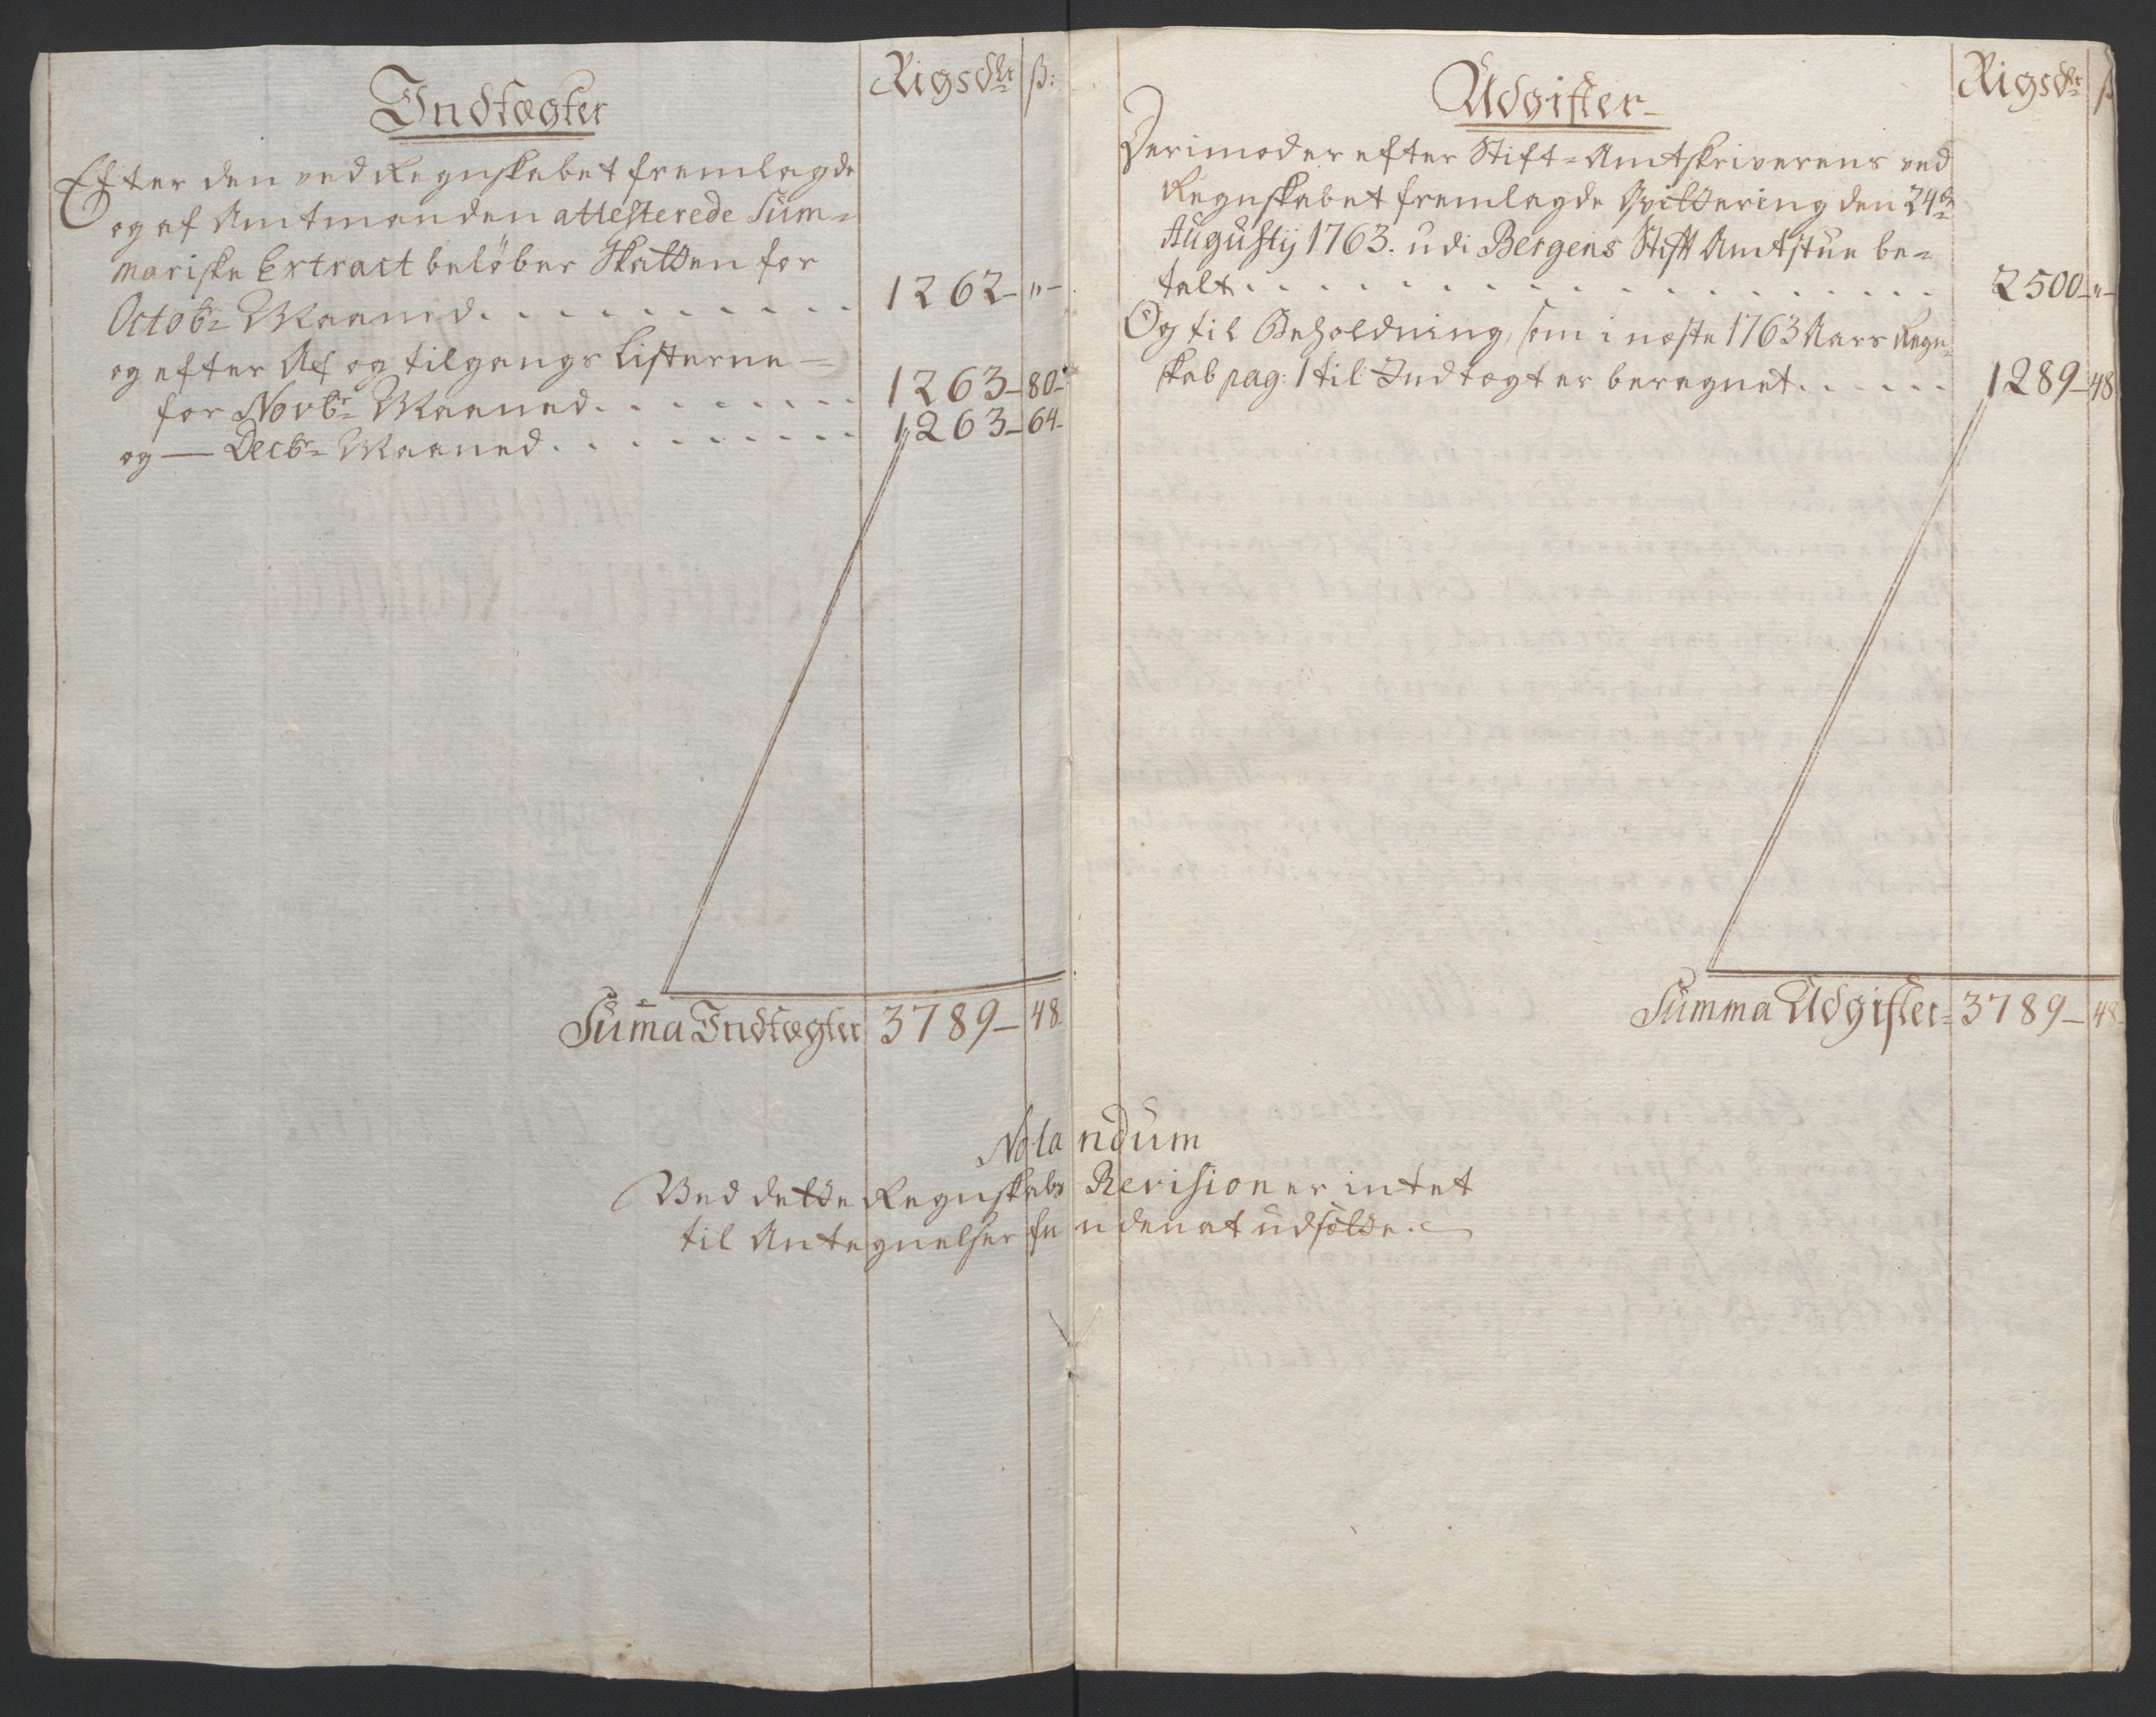 Indtægter
Rigsdlr ß:
Efter den ved Regnskabet fremlagde
og af Amtmanden attesterede Sum=
mariske Extract beløber Skatten for
Octobr= Maaned. . . . . . . . . . 1262 – " –
og efter Af og tilgangs Listerne =
for Novbr= Maaned. . . . . . . . 1263 – 80 –
og — Decbr= Maaned. . . . . . . . 1263 – 64 –
Sum̄a Indtægter 3789 – 48
Udgifter
Rigsdr ß
Derimod er efter Stift=Amtskriverens ved
Regnskabet fremlagde Qvittering den 24de
Augustij 1763. udi Bergens Stift Amtstue be=
talt. . . . . . . . . . . . . . . . . 2500 – " –
Og til Beholdning, som i næste 1763 Aars Regn=
skab pag: 1 til Indtægt er beregnet. . . . . . 1289 – 48
Summa Udgifter= 3789 – 48
Notandum
Ved dette Regnskabs Revision er intet
til Antegnelser funden at udsætte.